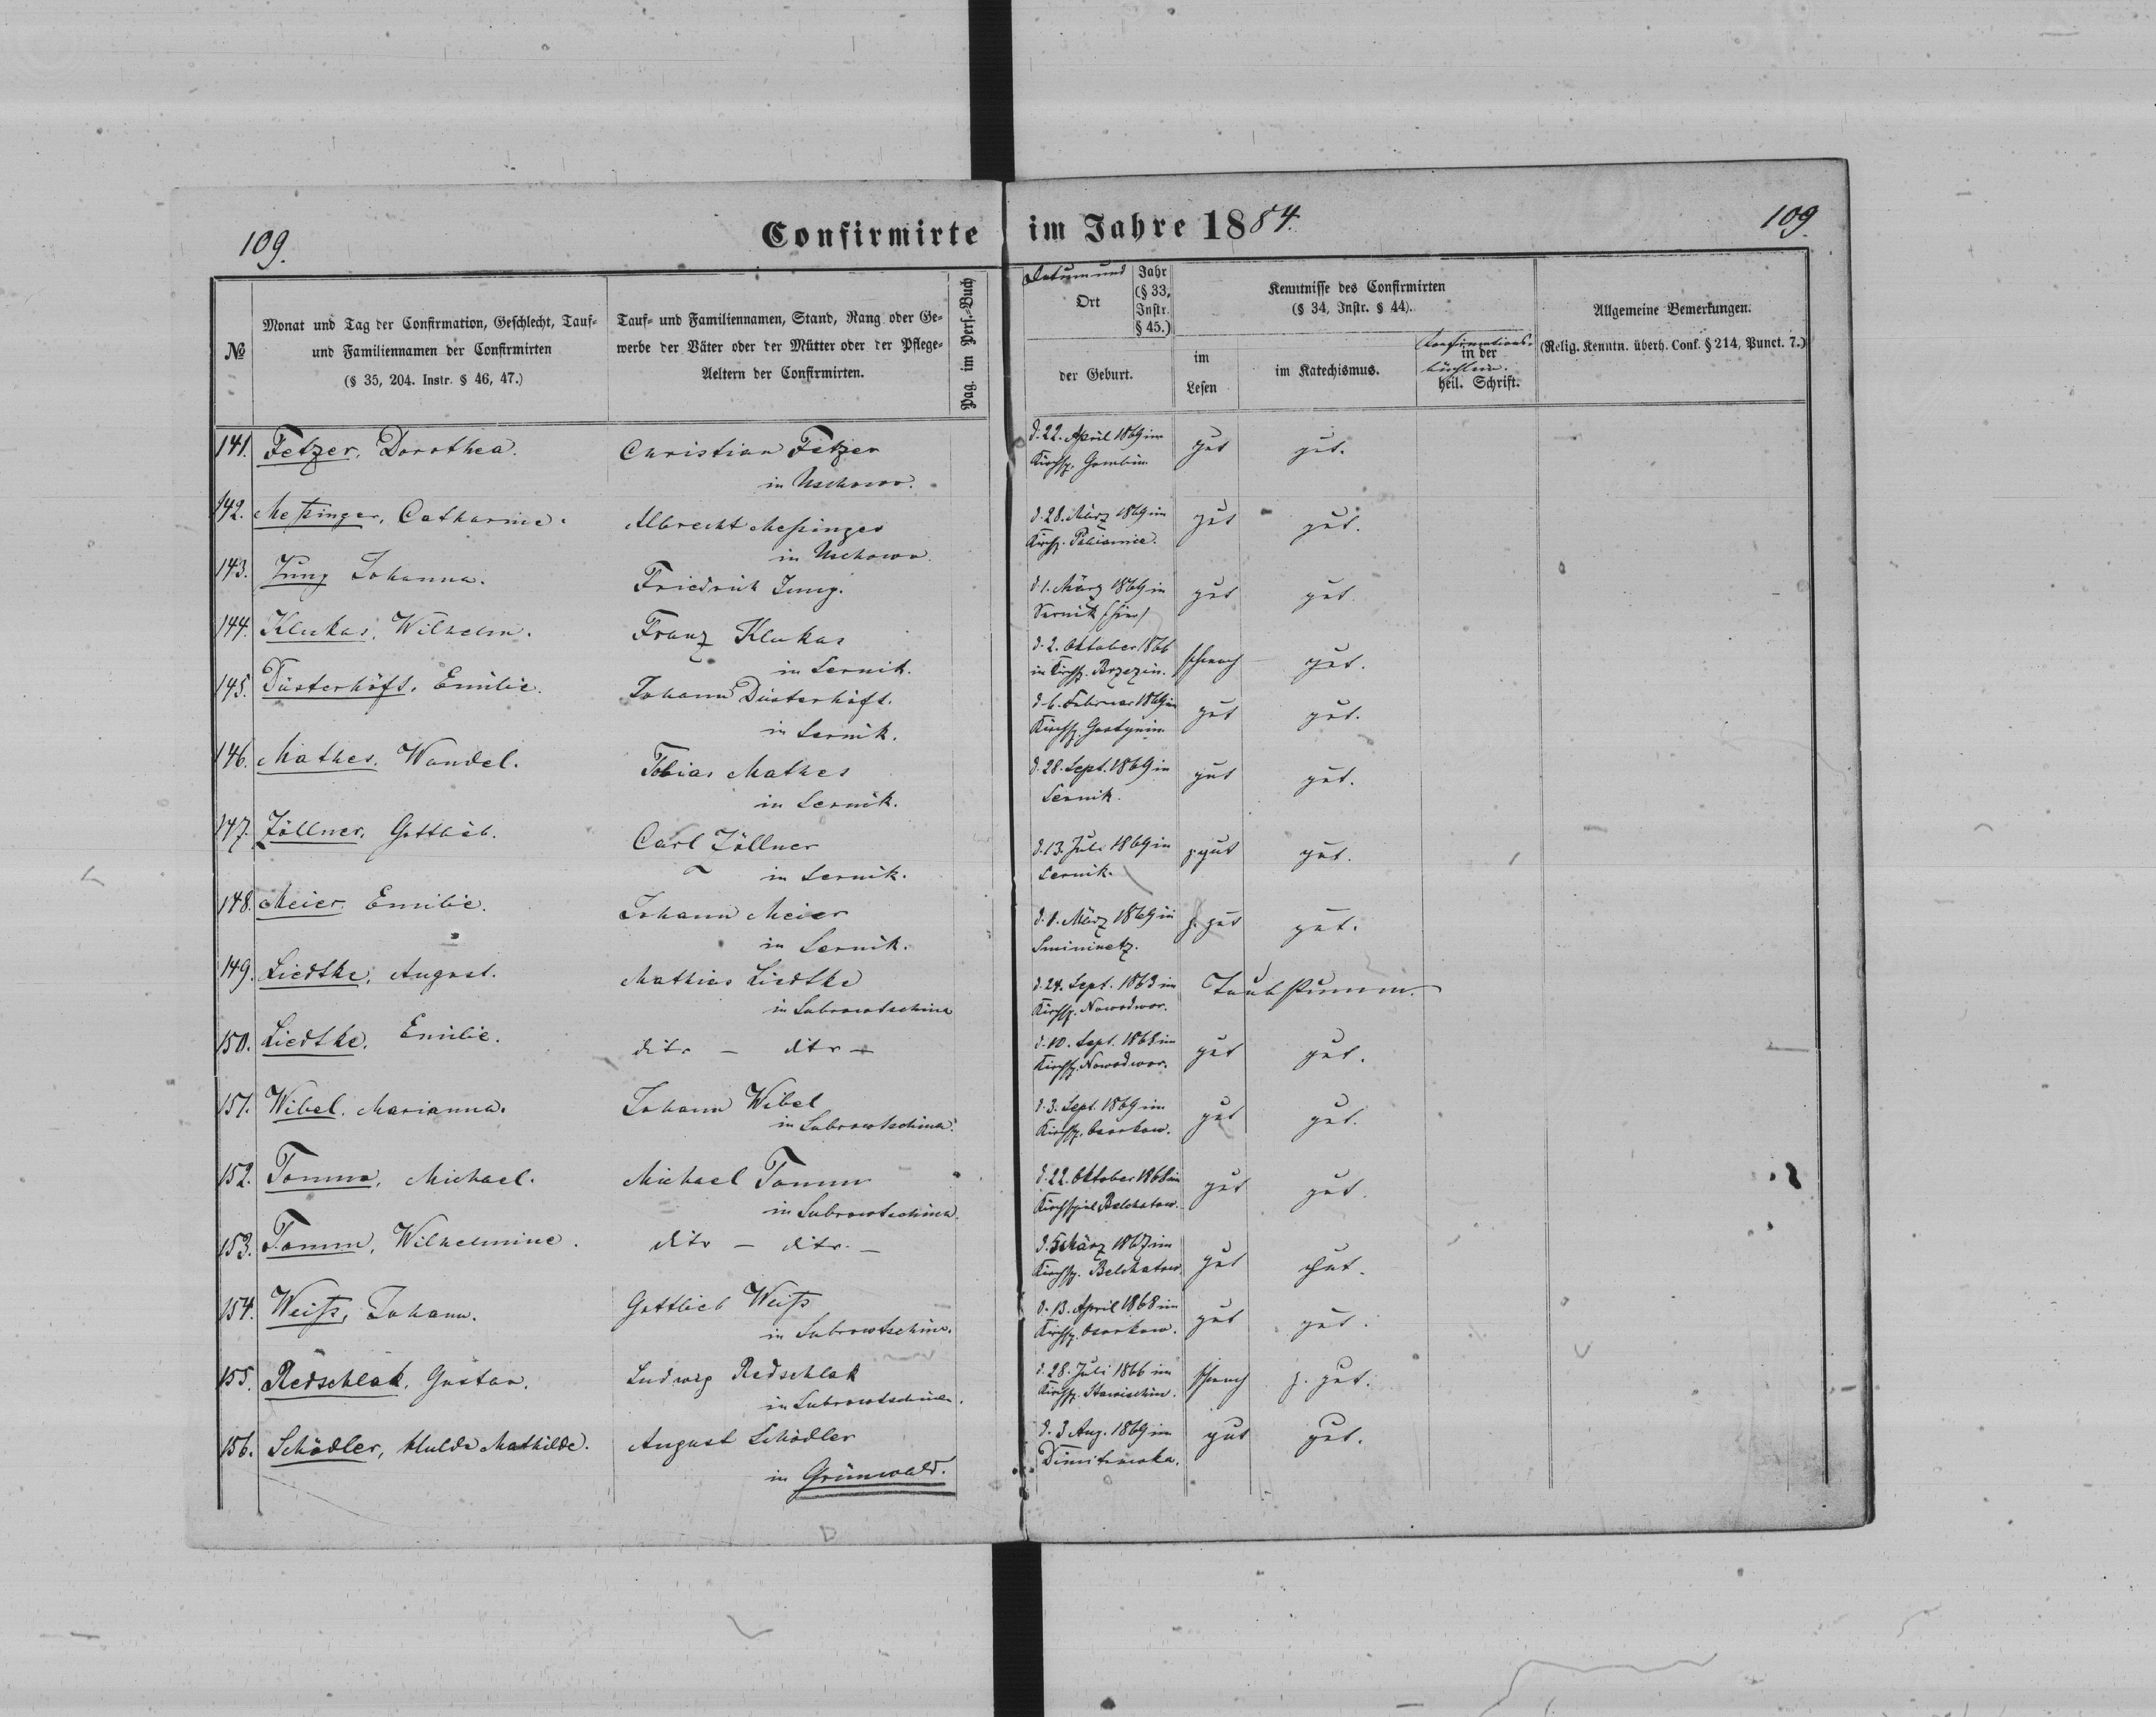 109.
Confirmirte im Jahre 1884.
109.
№
Monat und Tag der Confirmation, Geschlecht, Tauf-
und Familiennamen der Confirmirten
(§ 35, 204. Instr. § 46, 47.)
Tauf- und Familiennamen, Stand, Rang oder Ge-
werbe der Väter oder der Mütter oder der Pflege-
Aeltern der Confirmirten.
Pag. im Pers.-Buch
Datum und
Ort
Jahr
(§ 33,
Instr.
§ 45.)
der Geburt.
Kenntnisse des Confirmirten
(§ 34, Instr. § 44).
im
Lesen
im Katechismus.
Confirmations-
in der
büchlein.
heil. Schrift.
Allgemeine Bemerkungen.
(Relig. Kenntn. überh. Conf. § 214, Punct. 7.)
141. Fetzer, Dorothea. Christian Fetzer d. 22. April 1869 im gut gut.
in Uschowo. Kirchsp. Gombin
142. Meßinger, Catharine. Albrecht Meßinger d. 28. März 1869 im gut gut.
in Uschowo. Kirchsp. Pabianice.
143. Jung Johanna. Friedrich Jung. d. 1. März 1869 in gut gut
Sernik (hier)
144. Klukas, Wilhelm. Franz Klukas d. 2. Oktober 1866 schwach gut.
in Sernik. in Kirchsp. Brzezin.
145. Düsterhöft, Emilie. Johann Düsterhöft. d. 6. Februar 1869 im gut gut.
in Sernik. Kirchsp. Gostynin
146. Mathes, Wandel. Tobias Mathes d. 28. Sept. 1869 in gut gut.
in Sernik. Sernik.
147. Zöllner, Gottlieb. Carl Zöllner d. 13. Juli 1869 in z. gut gut.
in Sernik. Sernik.
148. Meier Emilie. Johann Meier d. 1. März 1869 in z. gut gut.
in Sernik.
149. Liedtke, August. Mathias Liedtke d. 24. Sept. 1863 im Taubstumm.
Kirchsp. Nowodwor.
150. Liedtke, Emilie. dito – dito – d. 10. Sept. 1868 im gut gut.
Kirchsp. Nowodwor.
151. Wibel, Marianna. Johann Wibel d. 3. Sept. 1869 im gut gut.
Kirchsp. Osorkow.
152. Tomm, Michael. Michael Tomm d. 22. Oktober 1868 im gut gut.
Kirchspiel Belchatow.
153. Tomm, Wilhelmine. dito – dito – d. 5 März 1867 im gut gut.
Kirchsp. Belchatow.
154. Weiß, Johann. Gottlieb Weiß d. 13. April 1868 im gut gut.
Kirchsp. Osorkow.
155. Redschlak, Gustav. Ludwig Redschlak d. 28. Juli 1866 im schwach z. gut.
Kirchsp. Stawischin.
156. Schödler, Hulda Mathilde. August Schödler d. 3 Aug. 1869 in gut gut.
in Grünwald.